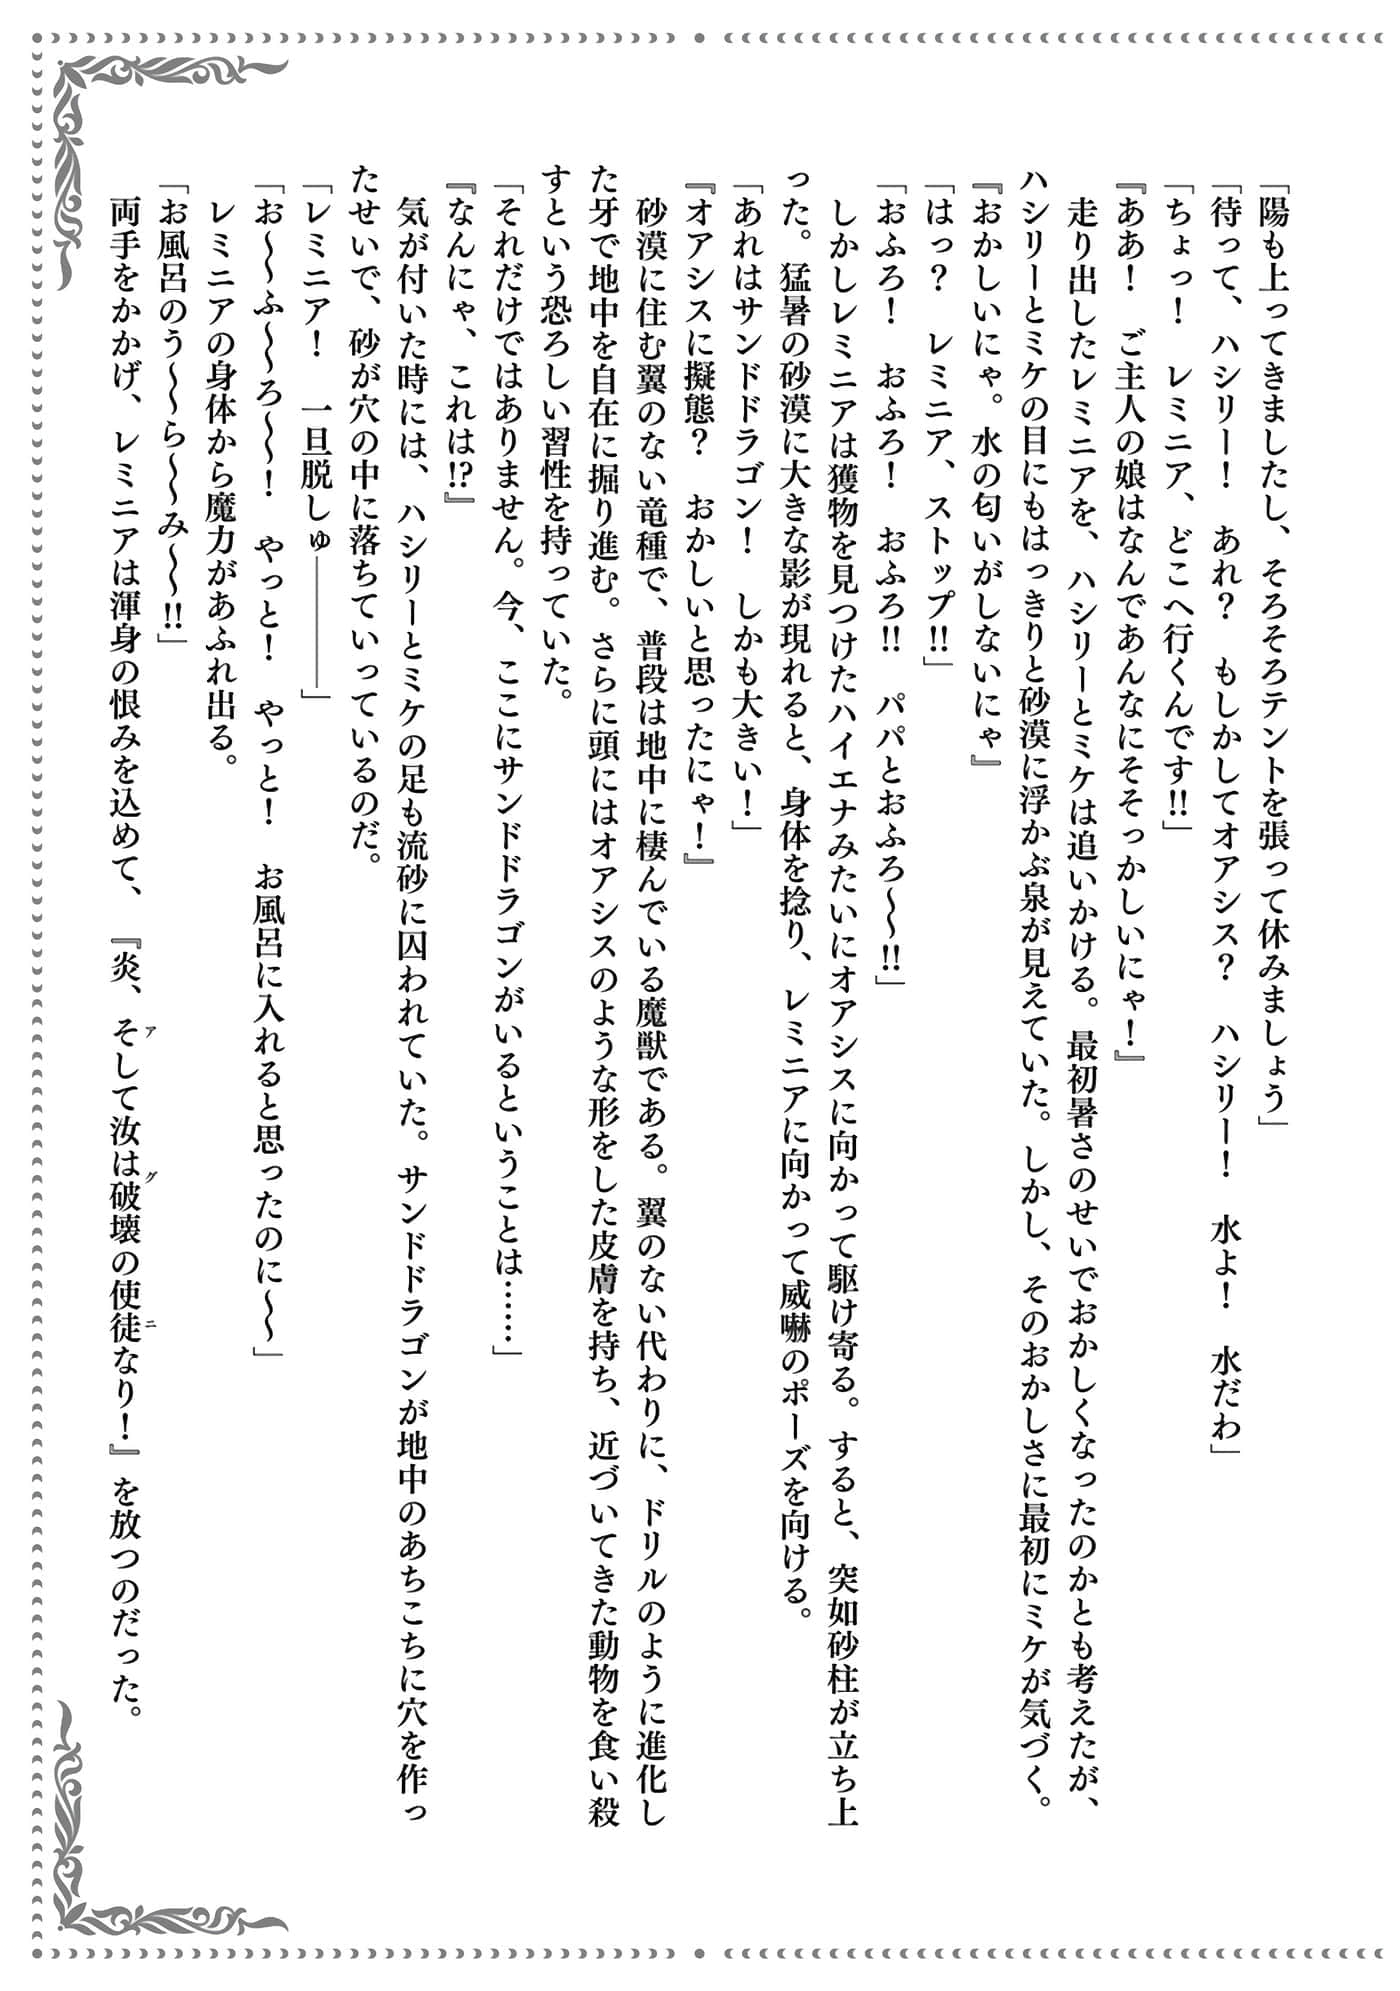 「陽も上ってきましたし、そろそろテントを張って休みましょう」
「待って、ハシリー！　あれ？　もしかしてオアシス？　ハシリー！　水よ！　水だわ」
「ちょっ！　レミニア、どこへ行くんです!!」
『ああ！　ご主人の娘はなんであんなにそそっかしいにゃ！』
　走り出したレミニアを、ハシリーとミケは追いかける。最初暑さのせいでおかしくなったのかとも考えたが、
ハシリーとミケの目にもはっきりと砂漠に浮かぶ泉が見えていた。しかし、そのおかしさに最初にミケが気づく。
『おかしいにゃ。水の匂いがしないにゃ』
「はっ？　レミニア、ストップ!!」
「おふろ！　おふろ！　おふろ!!　パパとおふろ〜〜!!」
　しかしレミニアは獲物を見つけたハイエナみたいにオアシスに向かって駆け寄る。すると、突如砂柱が立ち上
った。猛暑の砂漠に大きな影が現れると、身体を捻り、レミニアに向かって威嚇のポーズを向ける。
「あれはサンドドラゴン！　しかも大きい！」
『オアシスに擬態？　おかしいと思ったにゃ！』
　砂漠に住む翼のない竜種で、普段は地中に棲んでいる魔獣である。翼のない代わりに、ドリルのように進化し
た牙で地中を自在に掘り進む。さらに頭にはオアシスのような形をした皮膚を持ち、近づいてきた動物を食い殺
すという恐ろしい習性を持っていた。
「それだけではありません。今、ここにサンドドラゴンがいるということは……」
『なんにゃ、これは!?』
　気が付いた時には、ハシリーとミケの足も流砂に囚われていた。サンドドラゴンが地中のあちこちに穴を作っ
たせいで、砂が穴の中に落ちていっているのだ。
「レミニア！　一旦脱しゅ――――」
「お〜〜ふ〜〜ろ〜〜！　やっと！　やっと！　お風呂に入れると思ったのに〜〜」
　レミニアの身体から魔力があふれ出る。
「お風呂のう〜〜ら〜〜み〜〜!!」
　両手をかかげ、レミニアは渾身の恨みを込めて、『炎、そして汝は破壊の使徒なり！』を放つのだった。
アグニ